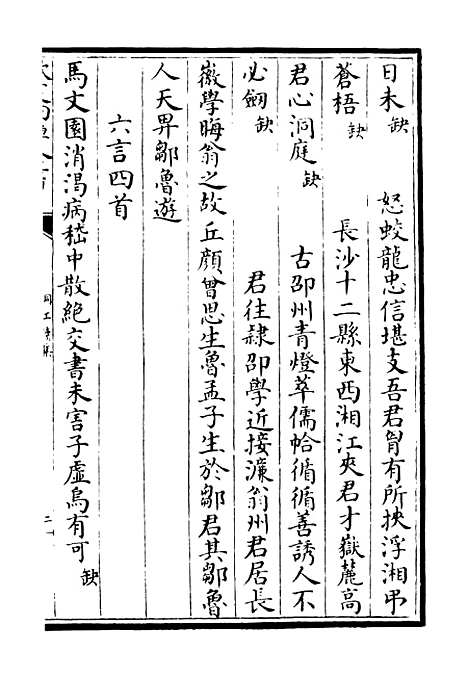 日未缺　　怒蛟龍忠信堪支吾君胷有所挾浮湘弔
蒼梧缺　　長沙十二縣東西湘江夾君才嶽麓高
君心洞庭缺　　古邵州青燈萃儒帢循循善誘人不
必劒缺　　君往隸邵學近接濂翁州君居長
徽學晦翁之故丘顔曾思生魯孟子生於鄒君其鄒魯
人天畀鄒魯遊
六言四首
馬文園消渴病嵇中散絶交書未害子虛烏有可缺